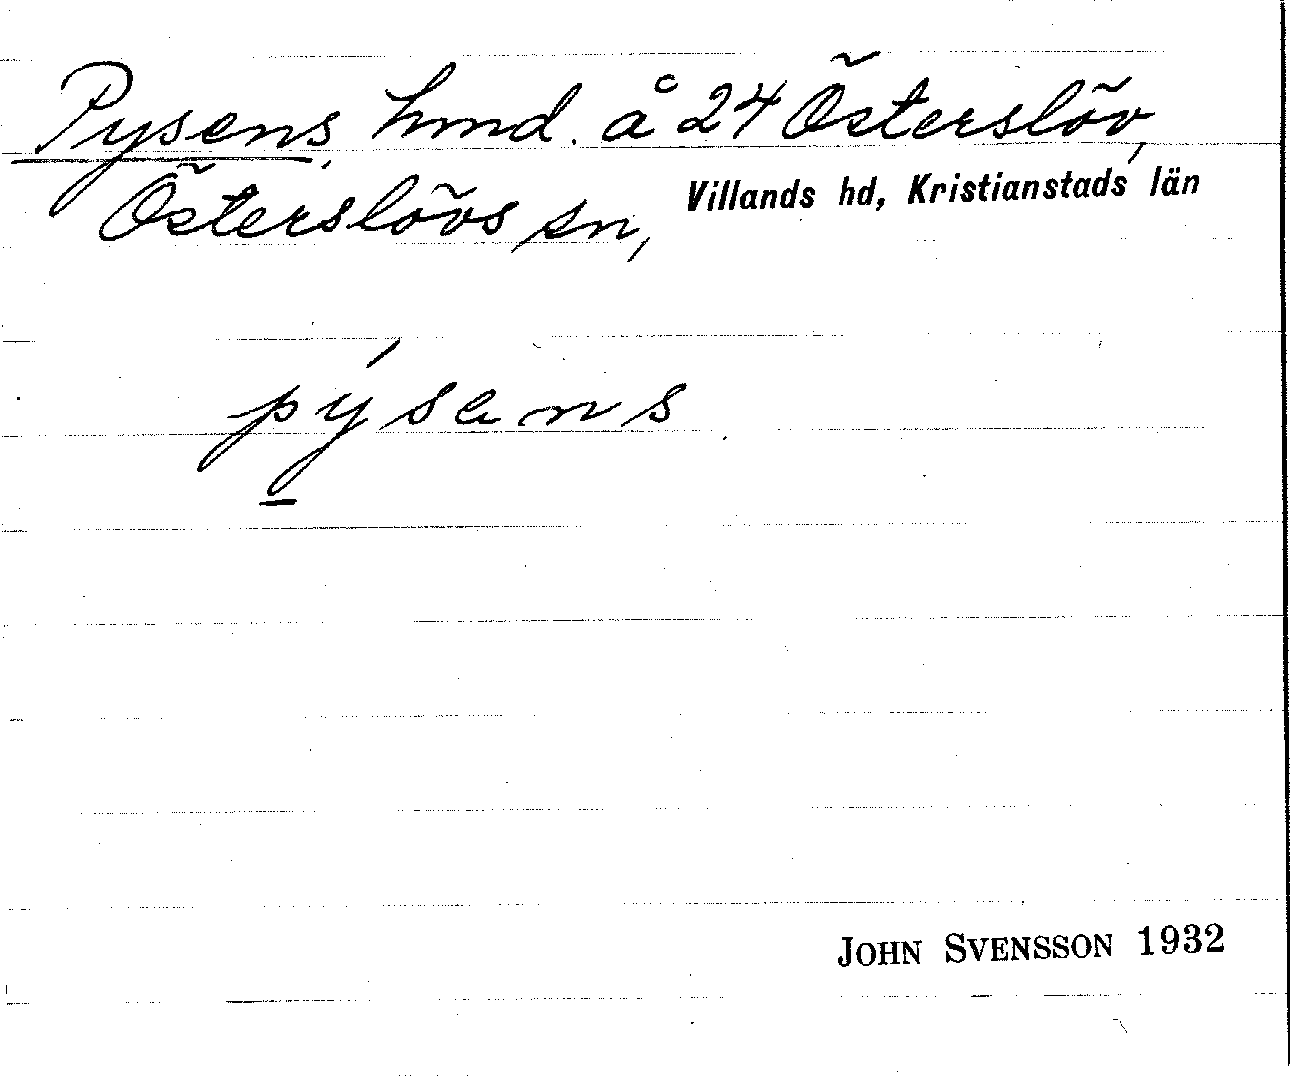 Pysens, hmd. å 24 Österslöv,
Österslövs sn, Villands hd, Kristianstads län
pýsens
JOHN SVENSSON 1932